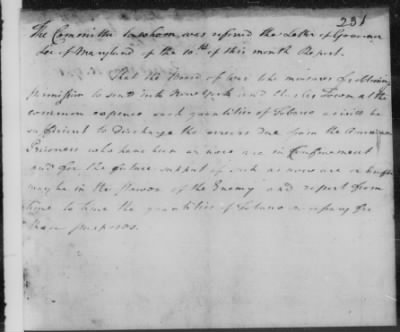 231
The Committee to whom was referred the Letter of Governor
Lee of Maryland of the 10th of this month Report.
That the Board of War take measures for obtaining
permission to send into New York and Charles Town at the
common expence such quantities of Tobacco as will be
sufficient to discharge the arrears due from the American
Prisoners who have been or now are in Confinement
and for the future support of such as now are or hereafter
may be in the Power of the Enemy and report from
time to time the quantities of Tobacco necessary for
these purposes.